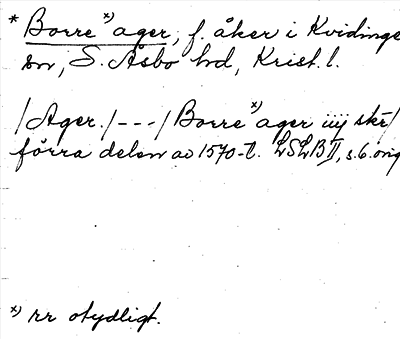 * Borre x) ager, f. åker i Kvidinge
sn, S. Åsbo hd, Krist. l.
/Ager./---/Borre x) ager iiij skr/
förra delen av 1570-t. LSLB II, s. 6. orig
x) rr otydligt.